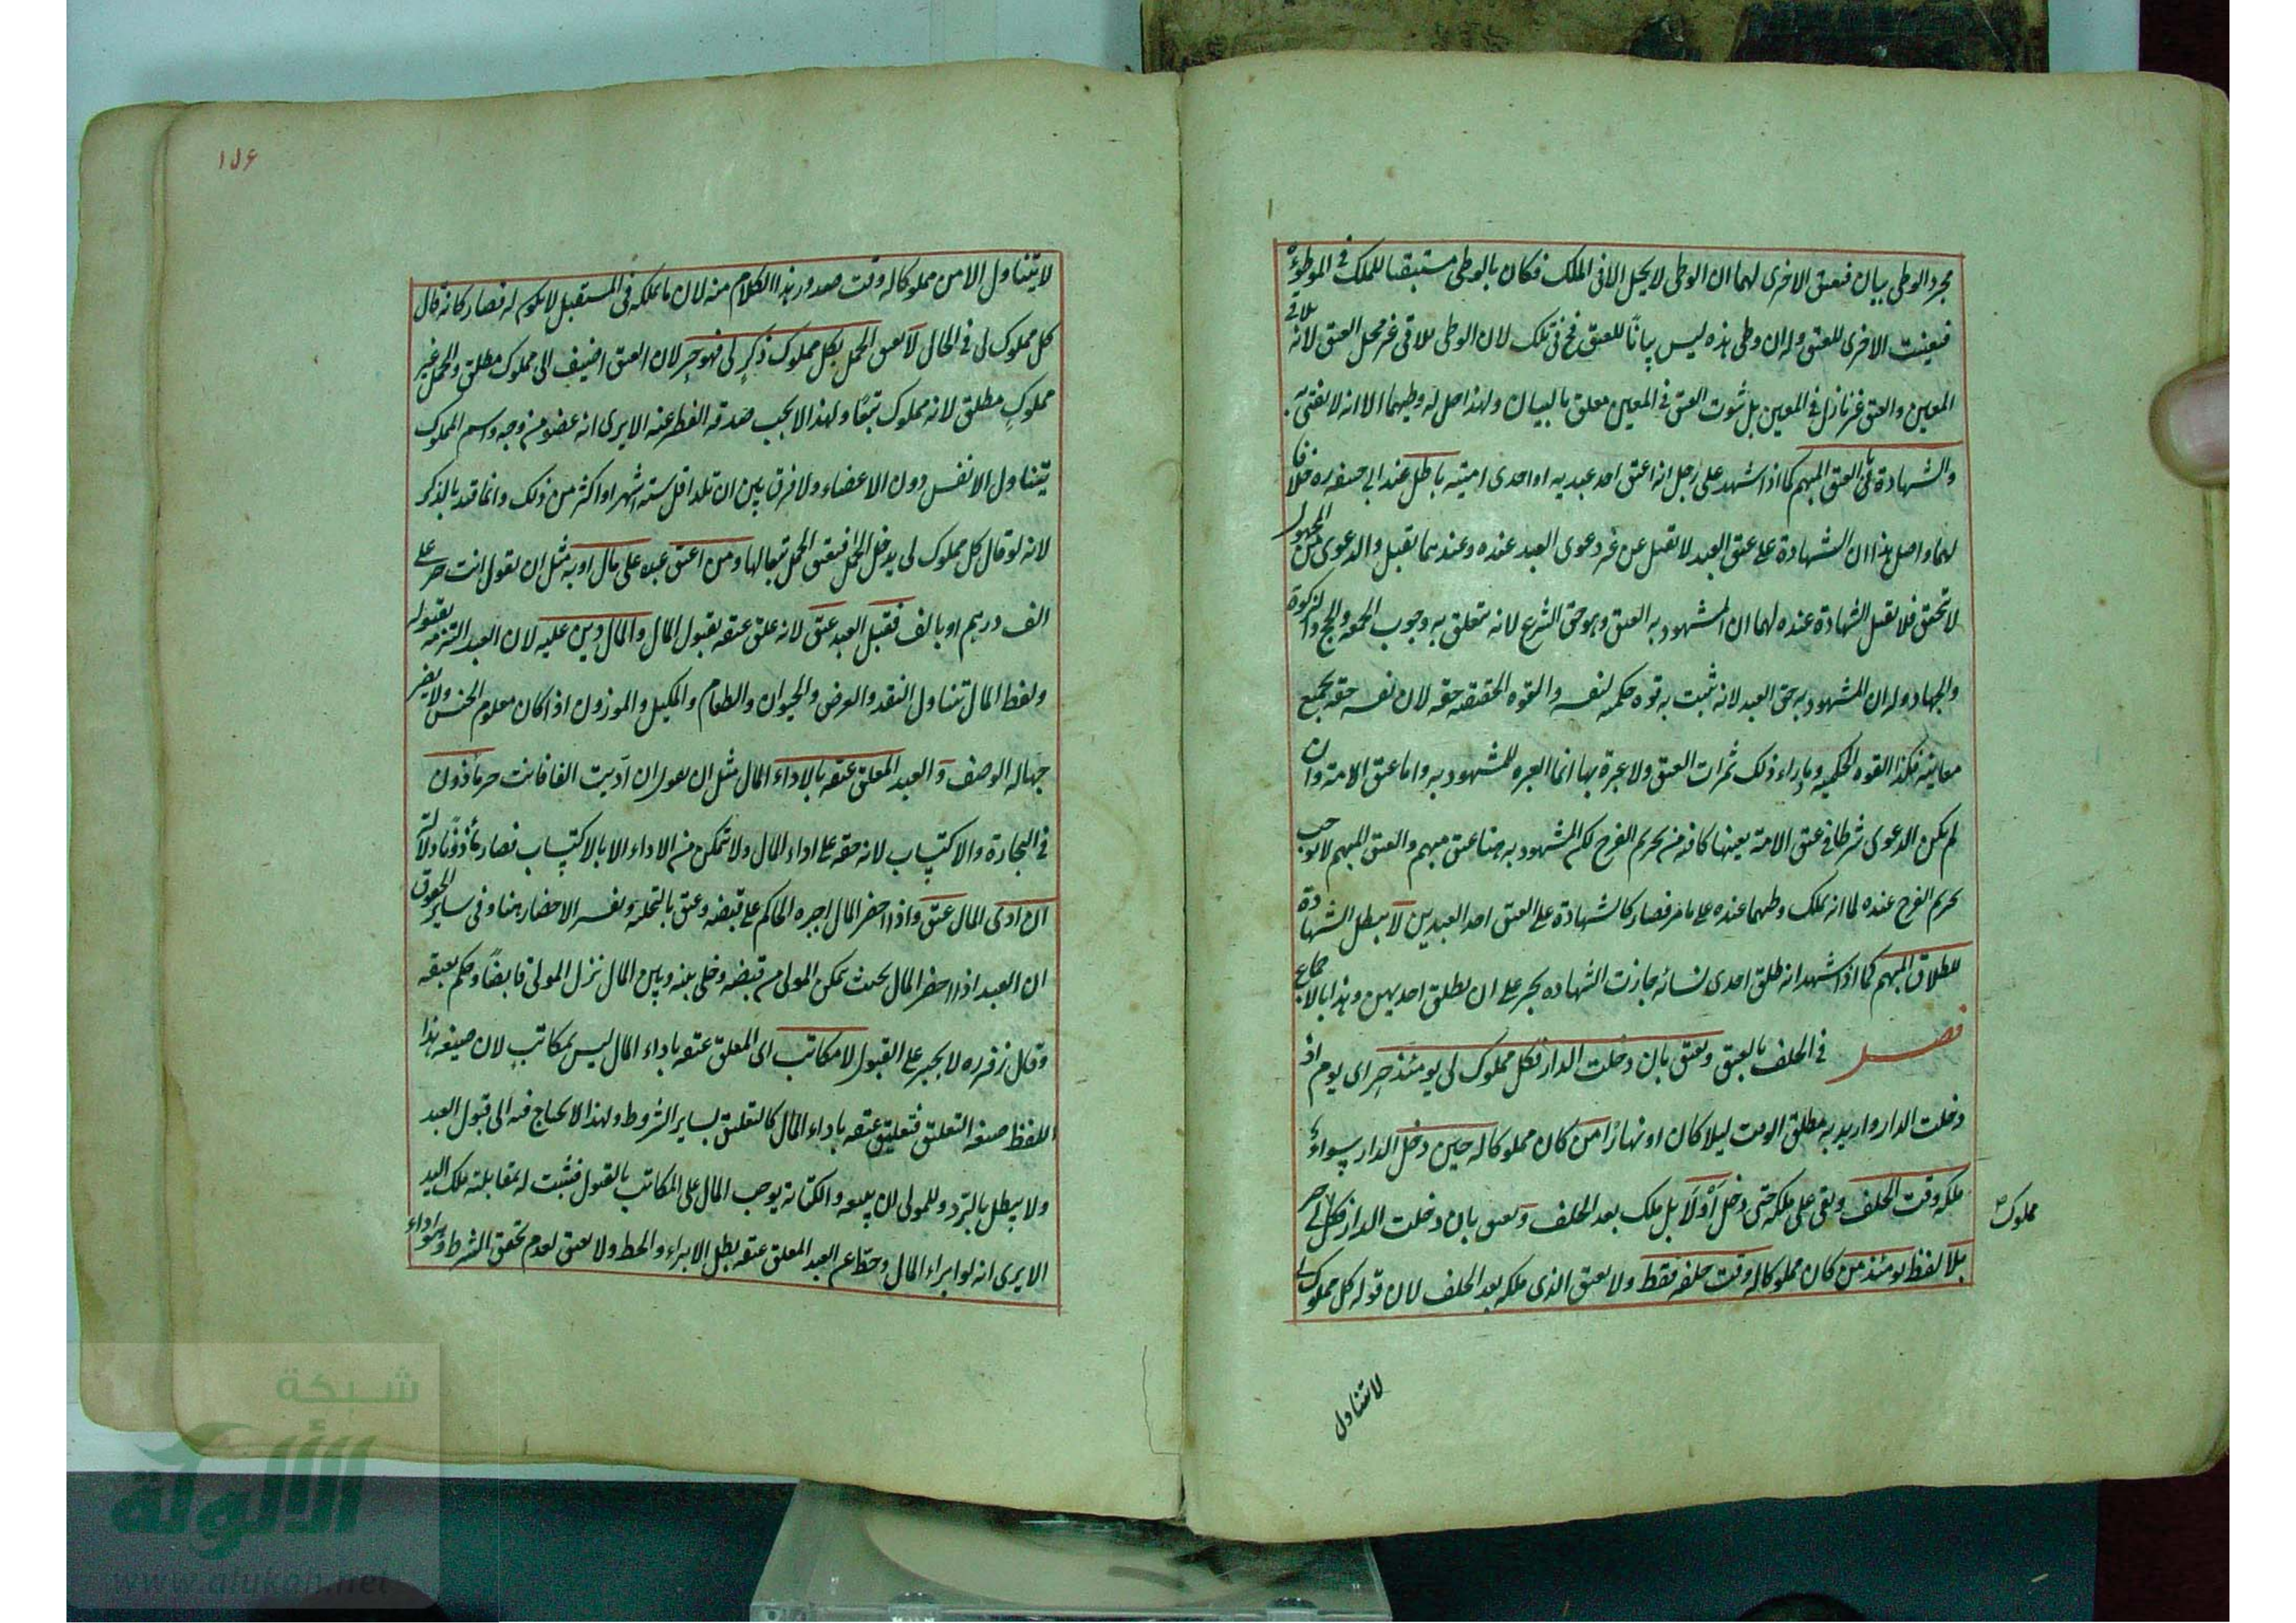 مجرد الوطى بيان فيعتق الاخرى لهما ان الوطى لا يحل الا فى الملك فكان بالوطى مستبقيا للملك فى الموطؤة
فتعينت الاخرى للعتق وله ان وطى هذه ليس بيانًا للعتق فى تلك لان الوطى يلاقى غير محل العتق لانه يلاقى
المعين والعتق غير نازل فى المعين بل ثبوت العتق فى المعين معلق بالبيان ولهذا حل له وطيهما الا انه لا يفتى به
والشهادة على العتق المبهم كما اذا شهد على رجل انه اعتق احد عبديه او احدى امتيه باطل عند ابى حنيفه ره خلافا
لهما واصل هذا ان الشهادة على عتق العبد لا تقبل عن غير دعوى العبد عنده وعندهما تقبل والدعوى من المجهول
لا تحقق فلا تقبل الشهادة عنده لهما ان المشهود به العتق وهو حق الشرع لانه تتعلق به وجوب الجمعه والحج والزكوة
والجهاد وله ان المشهود به حق العبد لانه تثبت به قوه حكميه لنفسه والقوه الحقيقيه حقه لان نفسه حقه بجميع
معانيه فكذا القوه الحكميه وما وراء ذلك ثمرات العتق ولا عبرة بها انما العبره للمشهود به واما عتق الامة وان
لم يكن الدعوى شرطا فى عتق الامة بعينها لما فيه من تحريم الفرج لكن المشهود به هنا عتق مبهم والعتق المبهم لا يوجب
تحريم الفرج عنده لما انه يملك وطيهما عنده على ما مر فصار كالشهادة على العتق احد العبدين لا يبطل الشهادة
للطلاق المبهم كما اذا شهدا انه طلق احدى نسائه جازت الشهاده يجبر على ان يطلق احديهن وهذا بالاجماع
فصل فى الحلف بالعتق ويعتق بان دخلت الدار فكل مملوك لى يومئذ حر اى يوم اذ
دخلت الدار واريد به مطلق الوقت ليلا كان او نهارًا من كان مملوكا له حين دخل الدار سواء
ملكه وقت الحلف وبقى على ملكه حتى دخل أوْلا بل ملك بعد الحلف ويعتق بان دخلت الدار فكل لى حر
مملوك
بلا لفظ يومئذ من كان مملوكا له وقت حلفه فقط ولا يعتق الذى ملكه بعد الحلف لان قوله كل مملوك لى
لا يتناول
١٥٦
لا يتناول الا من مملوكا له وقت صدور هذا الكلام منه لان ما يملكه فى المستقبل لا يكون له فصار كانه قال
كل مملوك لى فى الحال لا يعتق الحمل بكل مملوك ذكرٍ لى فهو حر لان العتق اضيف الى مملوك مطلق والحمل غير
مملوكٍ مطلق لانه مملوك تبعًا ولهذا لا يجب صدقه الفطر عنه الا يرى انه عضو من وجه واسم المملوك
يتناول الانفس دون الاعضاء ولا فرق بين ان تلد اقل سته اشهر او اكثر من ذلك وانما قيد بالذكر
لانه لو قال كل مملوك لى يدخل الحامل فيعتق الحمل تبعا لها ومن اعتق عبده على مال او به مثل ان يقول انت حر على
الف درهم او بالف فقبل العبد عتق لانه علق عتقه بقبول المال والمال دين عليه لان العبد التزمه بقبوله
ولفظ المال تناول النقد والعرض والحيوان والطعام والمكيل والموزون اذا كان معلوم الجنس ولا يضر
جهاله الوصف و العبد المعلق عتقه بالاداء المال مثل ان يقول ان ادّيت الفا فانت حر ماذون
فى التجارة والاكتساب لانه حقه على اداء المال ولا تمكن من الاداء الا بالاكتساب فصار مأذونًا دلالة
ان ادى المال عتق واذا احضر المال اجبره الحاكم على قبضه وعتق بالتخليه وتفسير الاحضار هنا وفى ساير الحقوق
ان العبد اذا احضر المال بحيث تمكن المولى من قبضه وخلى بينه وبين المال نزل المولى قابضًا وحكم بعتقه
وقال زفر ره لا يجبر على القبول لا مكاتب اى المعلق عتقه باداء المال ليس بمكاتبٍ لان صيغه هذا
اللفظ صيغه التعليق فتعليق عتقه باداء المال كالتعليق بساير الشروط ولهذا لا يحتاج فيه الى قبول العبد
ولا يبطل بالرّد وللمولى ان يبيعه والكتابة يوجب المال على المكاتب بالقبول فيثبت له بمقابلته ملك اليد
الا يرى انه لو ابراء المال وحطّا عن العبد المعلق عتقه بطل الابراء والحط ولا يعتق لعدم تحقق الشرط وهو اداء
شبكة
الألوكة
www.alukah.net